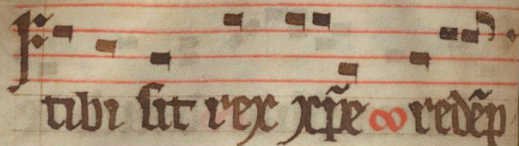 tibi sit rex xp̄e redēp